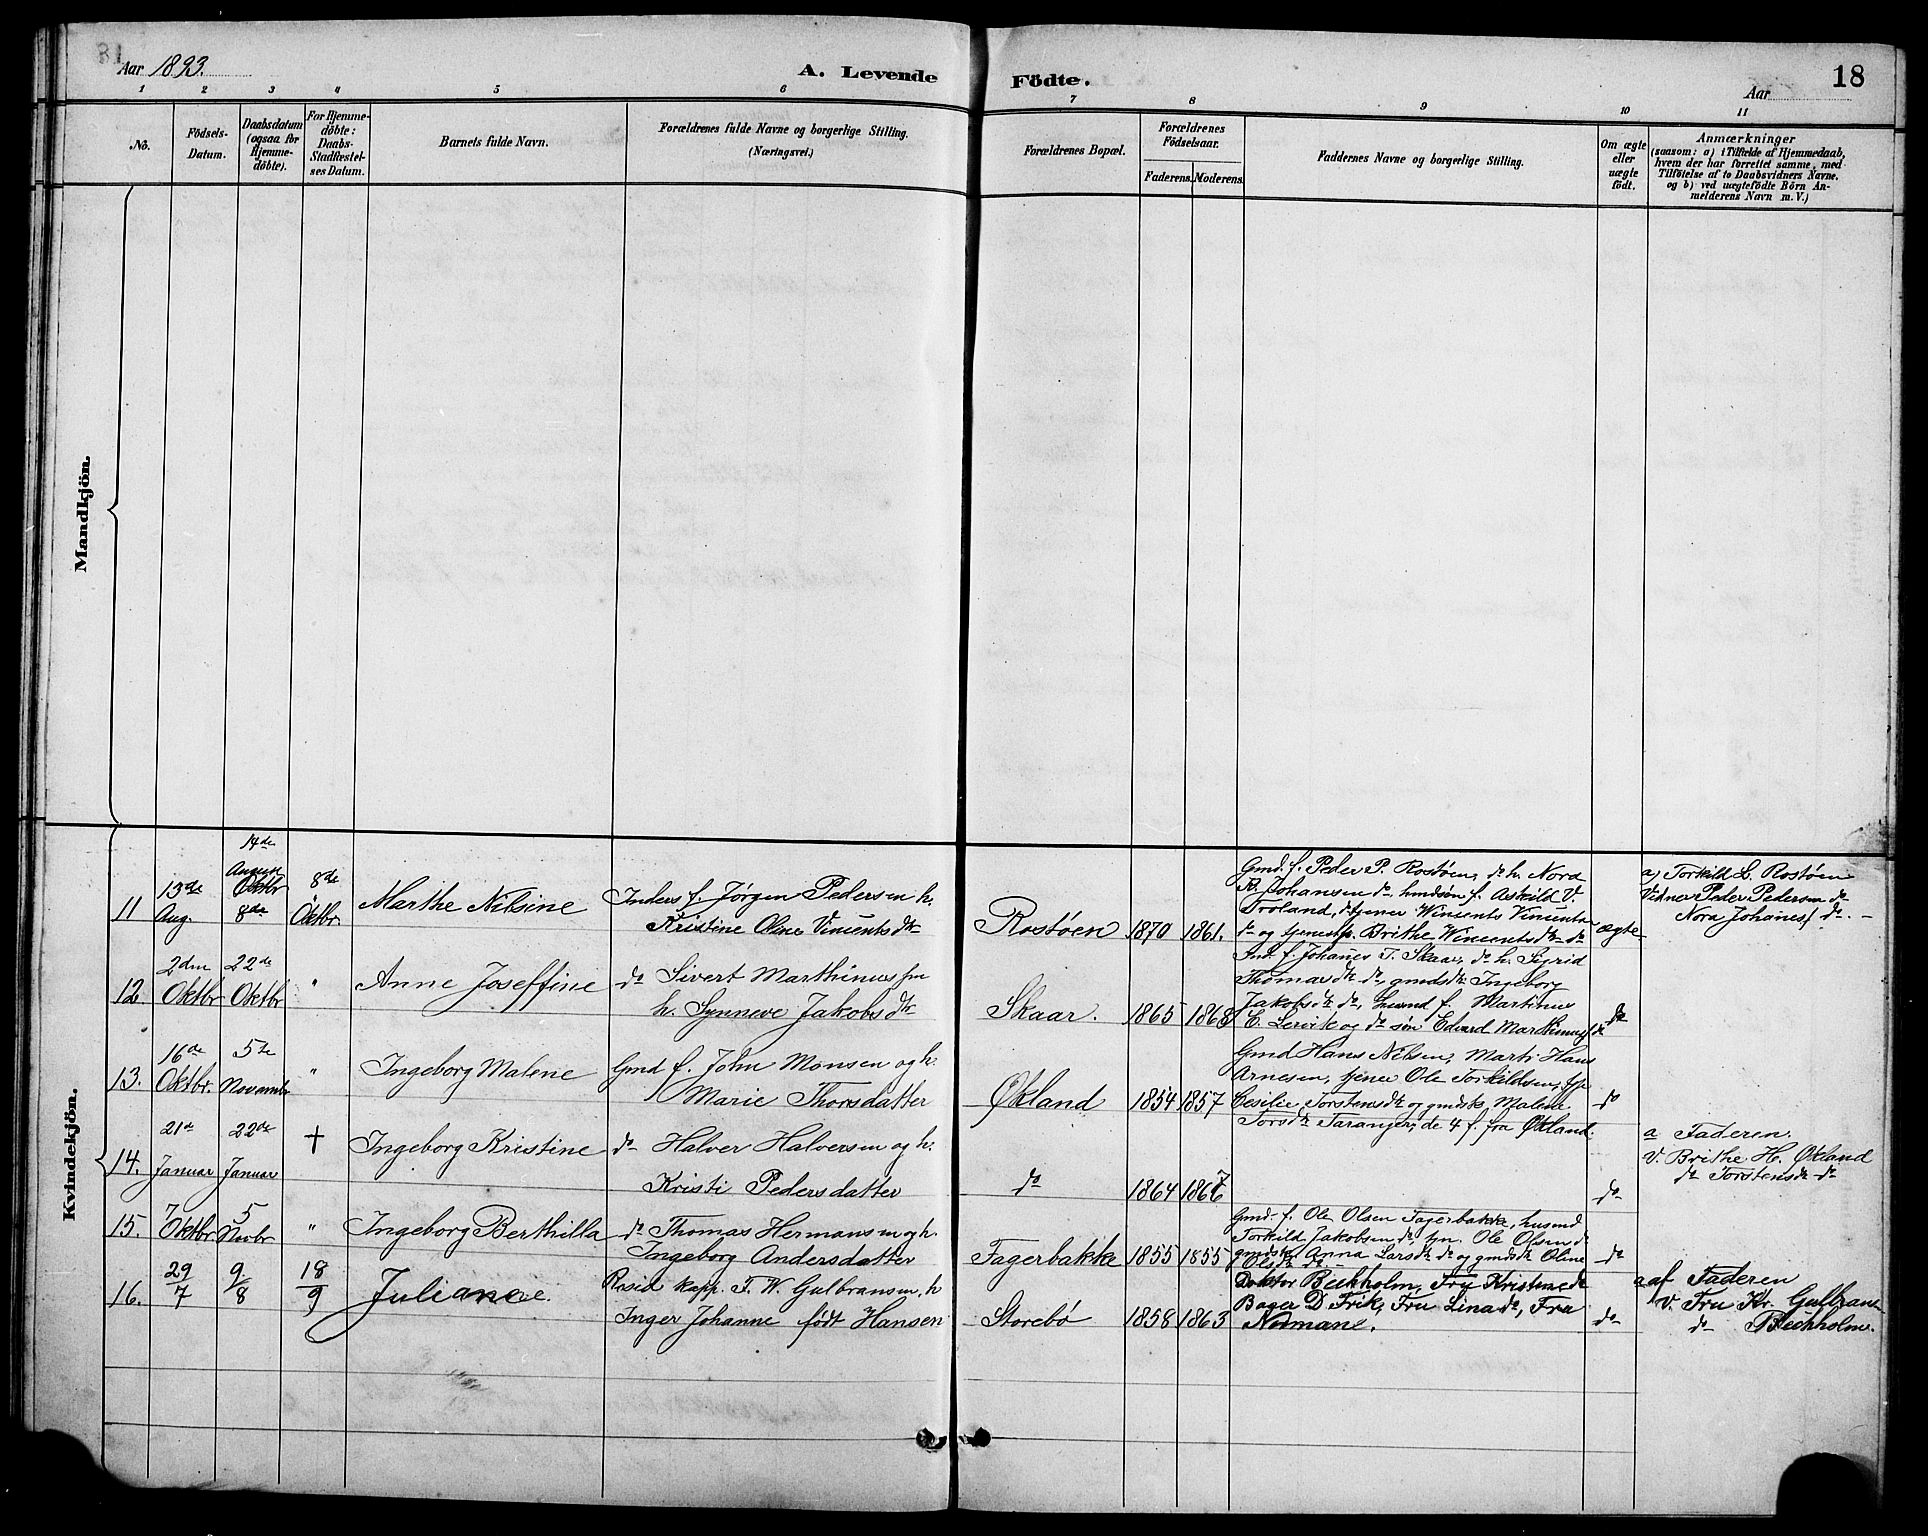 Aar 1893.
A. Levende
Födte.
Aar
18
1 2 3 4 5 6 7 8 9 10 11
No.
Födsels-
Datum.
Daabsdatum
(ogsaa for
Hjemme-
döbte).
For Hjemme-
döbte:
Daabs-
Stadfæstel-
ses Datum.
Barnets fulde Navn.
Forældrenes fulde Navne og borgerlige Stilling.
(Næringsvei.)
Forældrenes Bopæl.
Forældrenes
Födselsaar.
Faderens. Moderens.
Faddernes Navne og borgerlige Stilling.
Om ægte
eller
uægte
födt.
Anmærkninger
(saasom: a) i Tilfælde af Hjemmedaab,
hvem der har forrettet samme, med
Tilföielse af to Daabsvidners Navne,
og b) ved uægtefödte Börn An-
melderens Navn m. V.)
Mandkjön.
Kvindekjön.
11
13de
Aug.
14de
August
Oktbr
8de
8de
Oktbr.
Marthe Nilsine
Inders f. Jørgen Pedersen h.
Kristine Oline Vincentsdtr
Rostøen
1870
1861.
Gmd. f. Peder P. Rostøen, do h. Nora
B. Johansen do, hmdsøn f. Askild V.
Troland, do tjener Winsents Vinsents
do og tjenestp. Brithe Wincentsdtr do
ægte
a) Torkild L. Rostøen
Vidner Peder Pedersen do
Nora Johanes do
12.
2den
Oktbr
22de
Oktbr
"
Anne Joseffine
do Sivert Marthinussen
h. Synneve Jakobsdtr
Skaar.
1865
1868
Ind. f. Johanes T. Skaar, do h. Sigrid
Thomasdtr do, gmdsdtr Ingeborg
Jakobsdtr do, husmd f. Martinus
C. Lervik og do søn Edvard Marthinus
do
13.
16de
Oktbr.
5te
Novembr
"
Ingeborg Malene
Gmd f. John Monsen og h.
Marie Thorsdatter
Økland
1854
1857
Gmd Hans Nilsen, Marti Hans
Arnesen, tjener Ole Torkildsen,
Cesilie Torstensdtr og gmdsk Malene
Torsdtr Taranger, de 4 f. fra Økland.
do
14.
21de
Januar
22de
Januar
†
Ingeborg Kristine
do Halver Halversen og h.
Kristi Pedersdatter
do
1864
1867
do
a Faderen.
V. Brithe H. Økland
do Torstensdtr do
15.
7
Oktbr
5
Novbr
"
Ingeborg Berthilla
do Thomas Hermansen og h.
Ingeborg Andersdatter
Fagerbakke
1855
1855
Gmd. f. Ole Olsen Fagerbakke, husmd
Torkild Jakobsen do Ole Olsen do
gmdsk Anna Larsdtr do og gmdsdtr Oline
Olsdtr do
do
16.
29/7
9/8
18/9
Juliane
Resid kapp. T. W. Gulbransen, h
Inger Johanne født Hansen
Storebø
1858
1863
Doktor Beckholm, Fru Kristine do
Bager D Frik, Fru Lina do, Fru
Normane.
do
a af Faderen
V. Fru Kr. Gulbrans
do Beckholm.